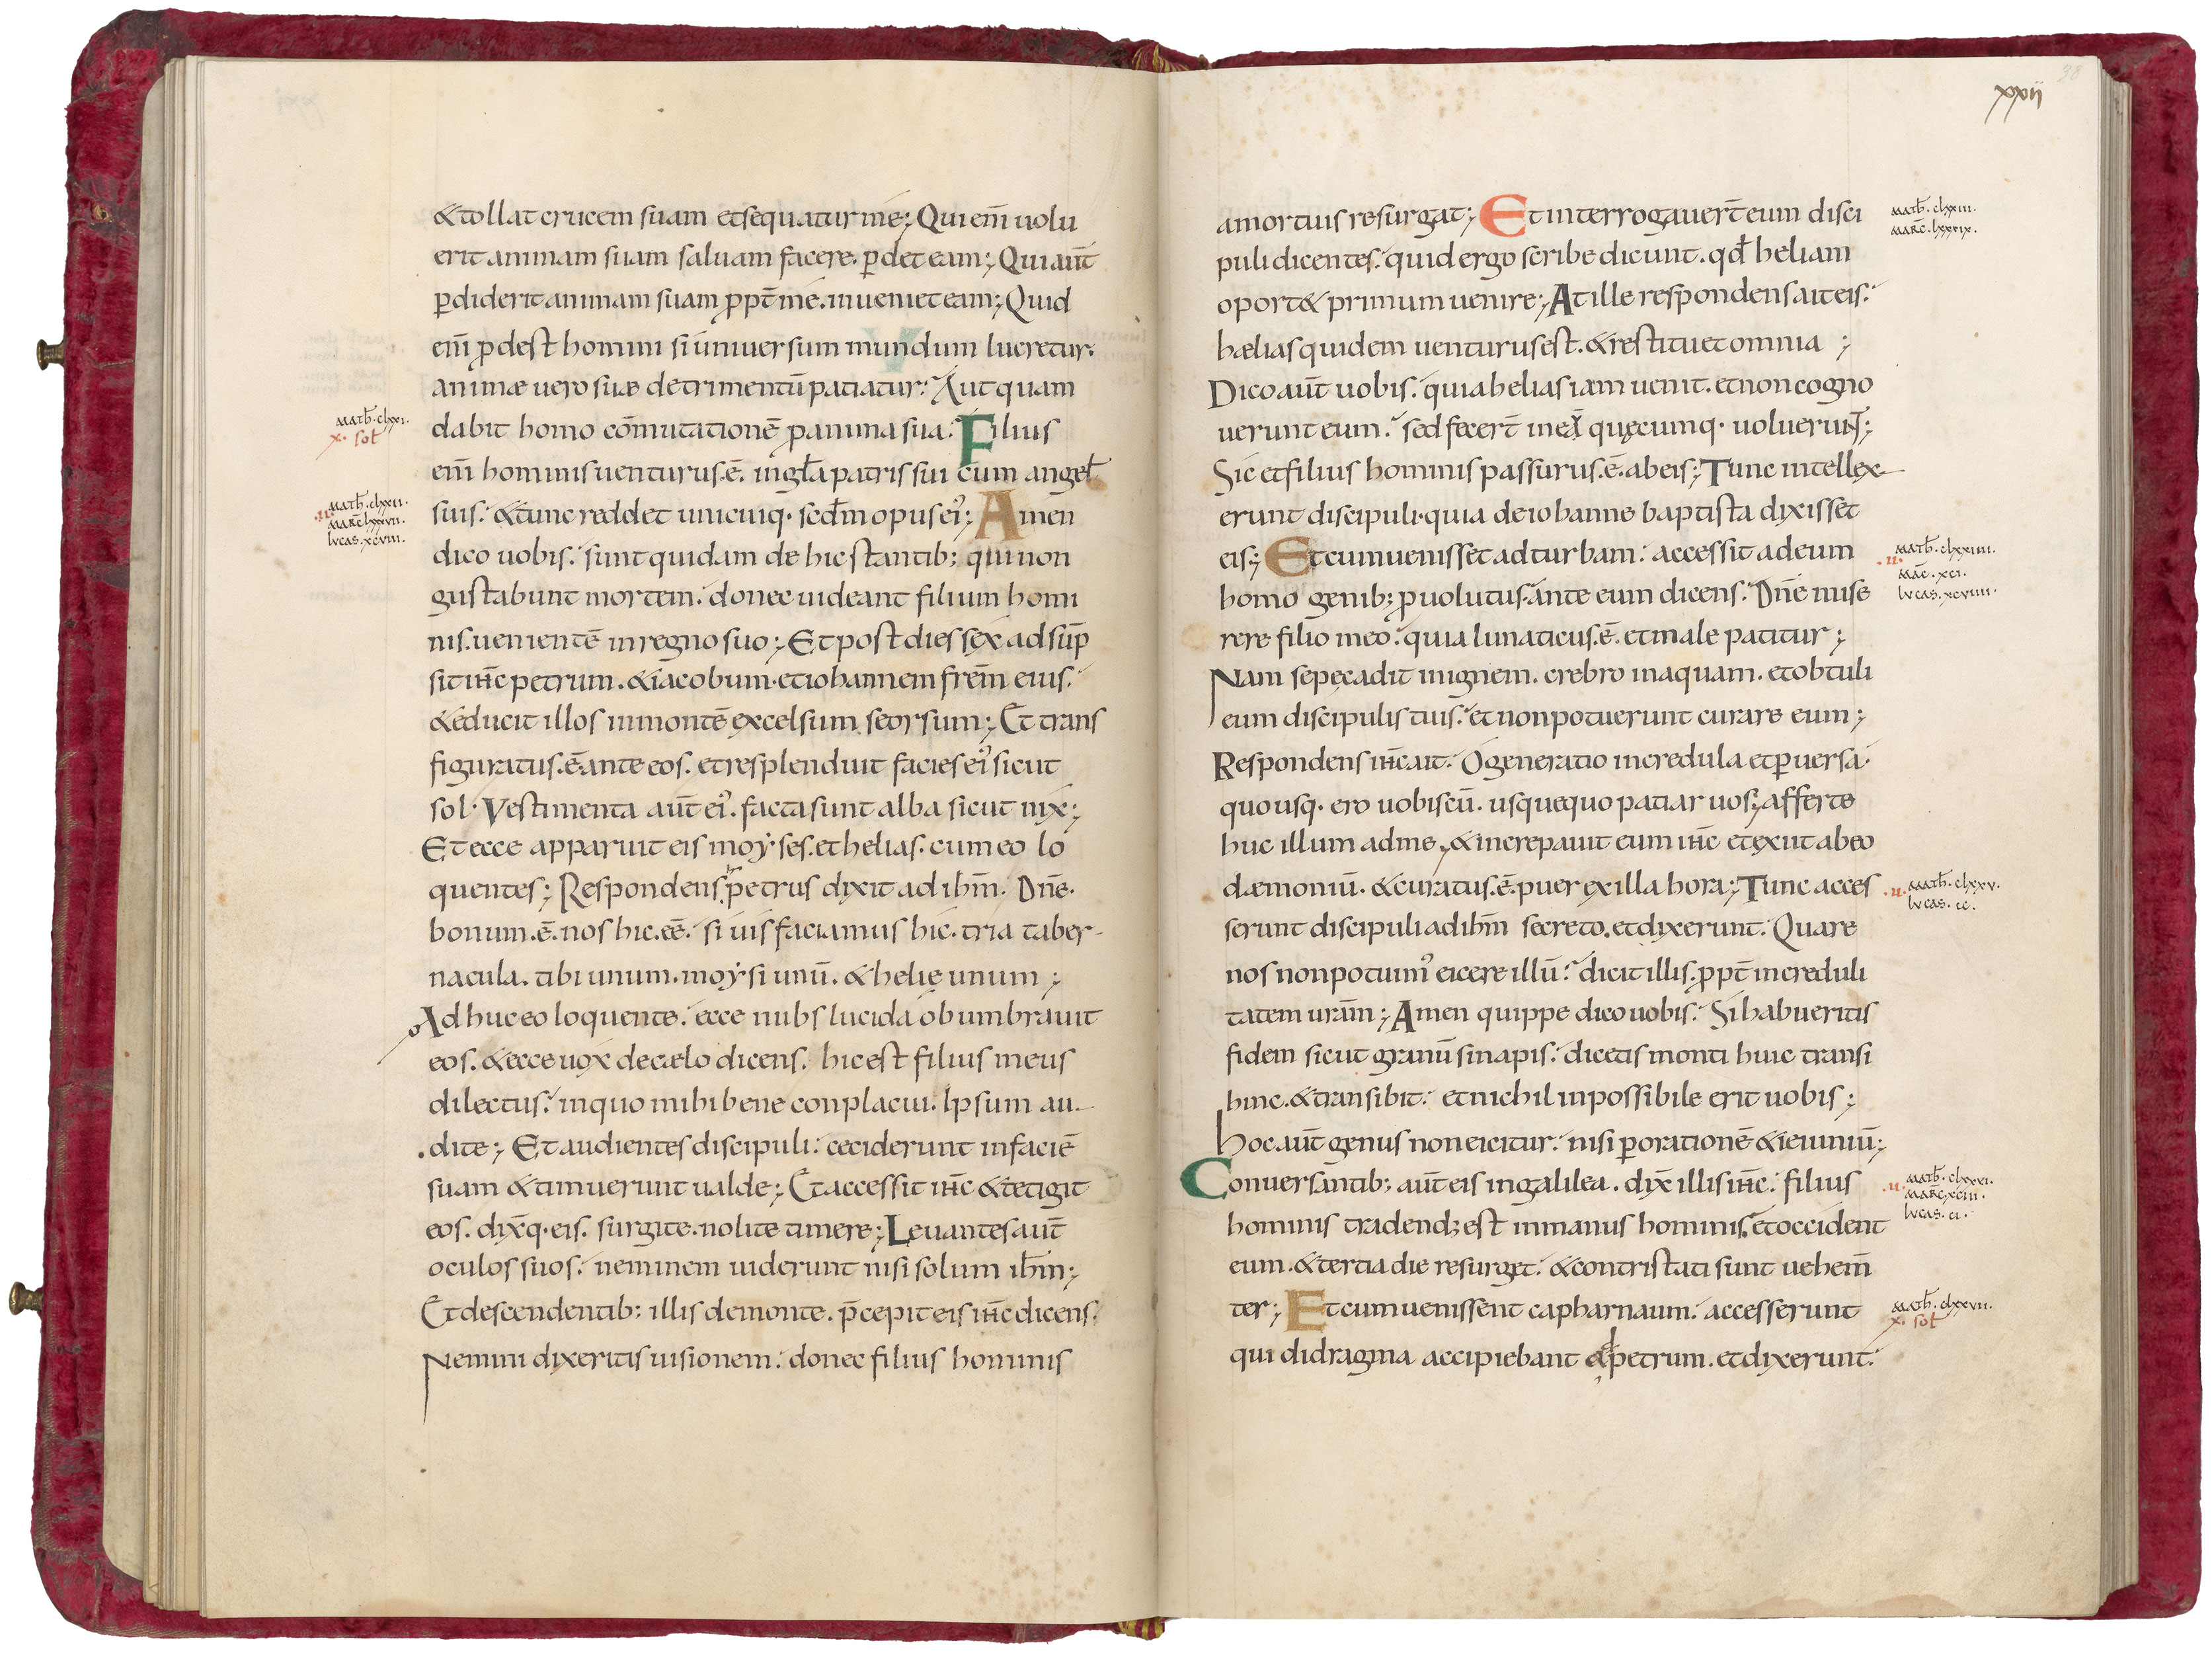 & tollat crucem suam et sequatur me; Qui eni̅ uolu
erit animam suam saluam facere. ꝑdet eam; Qui aut̅
ꝑdiderit animam suam ꝓpt̅ me. inueniet eam; Quid
eni̅ ꝓdest homini si uniuersum mundum lucretur.
animæ uero suæ detrimentu̅ patiatur; Aut quam
math̅. clxxi.
dabit homo co̅mutatione̅ ꝓ anima sua; Filius
x. sol̅
eni̅ hominis uenturus .e̅. in gl̅a patris sui cum angel̅
math̅. clxxii.
.ii. marc̅. lxxxvii.
lvcas. xcviii.
suis. & tunc reddet unicuiq· scd̅m opus ei᾽; Amen
dico uobis. sunt quidam de hic stantib; qui non
gustabunt mortem. donec uideant filium homi
nis.ueniente̅ in regno suo; Et post dies sex adsu̅p
sit ih̅c petrum. & iacobum. et iohannem fre̅m eius.
& educit illos in monte̅ excelsum seorsum; Et trans
figuratus .e̅. ante eos. et resplenduit facies ei᾽ sicut
sol. Vestimenta aut̅ ei᾽. facta sunt alba sicut nix;
Et ecce apparuit eis moẏses. et helias. cum eo lo
quentes; Respondens petrus dixit ad ih̅m. Dn̅e.
bonum .e̅. nos hic .ee̅. si uis faciamus hic. tria taber-
nacula. tibi unum. moẏsi unu̅. & helię unum;
Adhuc eo loquente. ecce nubs lucida obumbrauit
eos. & ecce uox de cælo dicens. hic est filius meus
dilectus. in quo mihi bene conplacui. Ipsum au-
dite; Et audientes discipuli. ceciderunt in facie̅
suam & timuerunt ualde; Et accessit ih̅c & tetigit
eos. dix̅q· eis. surgite. nolite timere; Leuantes aut̅
oculos suos. neminem uiderunt nisi solum ih̅m;
Et descendentib; illis de monte. p̅cepit eis ih̅c dicens.
Nemini dixeritis uisionem. donec filius hominis
xxii
38
a mortuis resurgat; Et interrogauer̅t eum disci
math̅. clxxiii.
marc̅. lxxxix.
puli dicentes. quid ergo scribe dicunt. qd̅ heliam
oport& primum uenire; At ille respondens ait eis.
hælias quidem uenturus est. & restituet omnia;
Dico aut̅ uobis. quia helias iam uenit. et non cogno
uerunt eum. sed fecer̅t in quęcumq· uoluerunt;
Sic et filius hominis passurus .e̅. ab eis; Tunc intellex-
erunt discipuli. quia de iohanne baptista dixisset
eis; Et cum uenisset ad turbam. accessit ad eum
math̅. clxxiiii.
.ii. mar̅c. xci.
lvcas. xcviiii.
homo genib; ꝓuolutus. ante eum dicens. Dn̅e mise
rere filio meo. quia lunaticus .e̅. et male patitur;
Nam sepe cadit in ignem. crebro in aquam. et obtuli
eum discipulis tuis. et non potuerunt curare eum;
Respondens ih̅c ait. O generatio incredula et ꝑuersa.
quo usq· ero uobiscu̅. usquequo patiar uos; afferte
huc illum ad me. & increpauit eum ih̅c et exiit ab eo
dæmoniu̅. & curatus .e̅. puer ex illa hora; Tunc acces
.ii. math̅. clxxv.
lvcas. cc.
serunt discipuli ad ih̅m secreto. et dixerunt. Quare
nos non potuim᾽ eicere illu̅. dicit illis. ꝓpt̅ increduli
tatem ura̅m; Amen quippe dico uobis. Si habueritis
fidem sicut granu̅ sinapis. dicetis monti huic transi
hinc. & transibit. et nichil inpossibile erit uobis;
hoc aut̅ genus non eicitur. nisi ꝑ oratione̅ & ieiuniu̅;
Conuersantib; aut̅ eis in galilea. dix̅ illis ih̅c. filius
.ii. math̅. clxxvi.
marc̅. xciii.
lvcas. ci.
hominis tradend; est in manus hominis. et occident
eum. & tertia die resurget. & contristati sunt uehem̅
ter; Et cum uenissent capharnaum. accesserunt
math̅. clxxvii.
x. sol̅
qui didragma accipiebant ad petrum. et dixerunt.